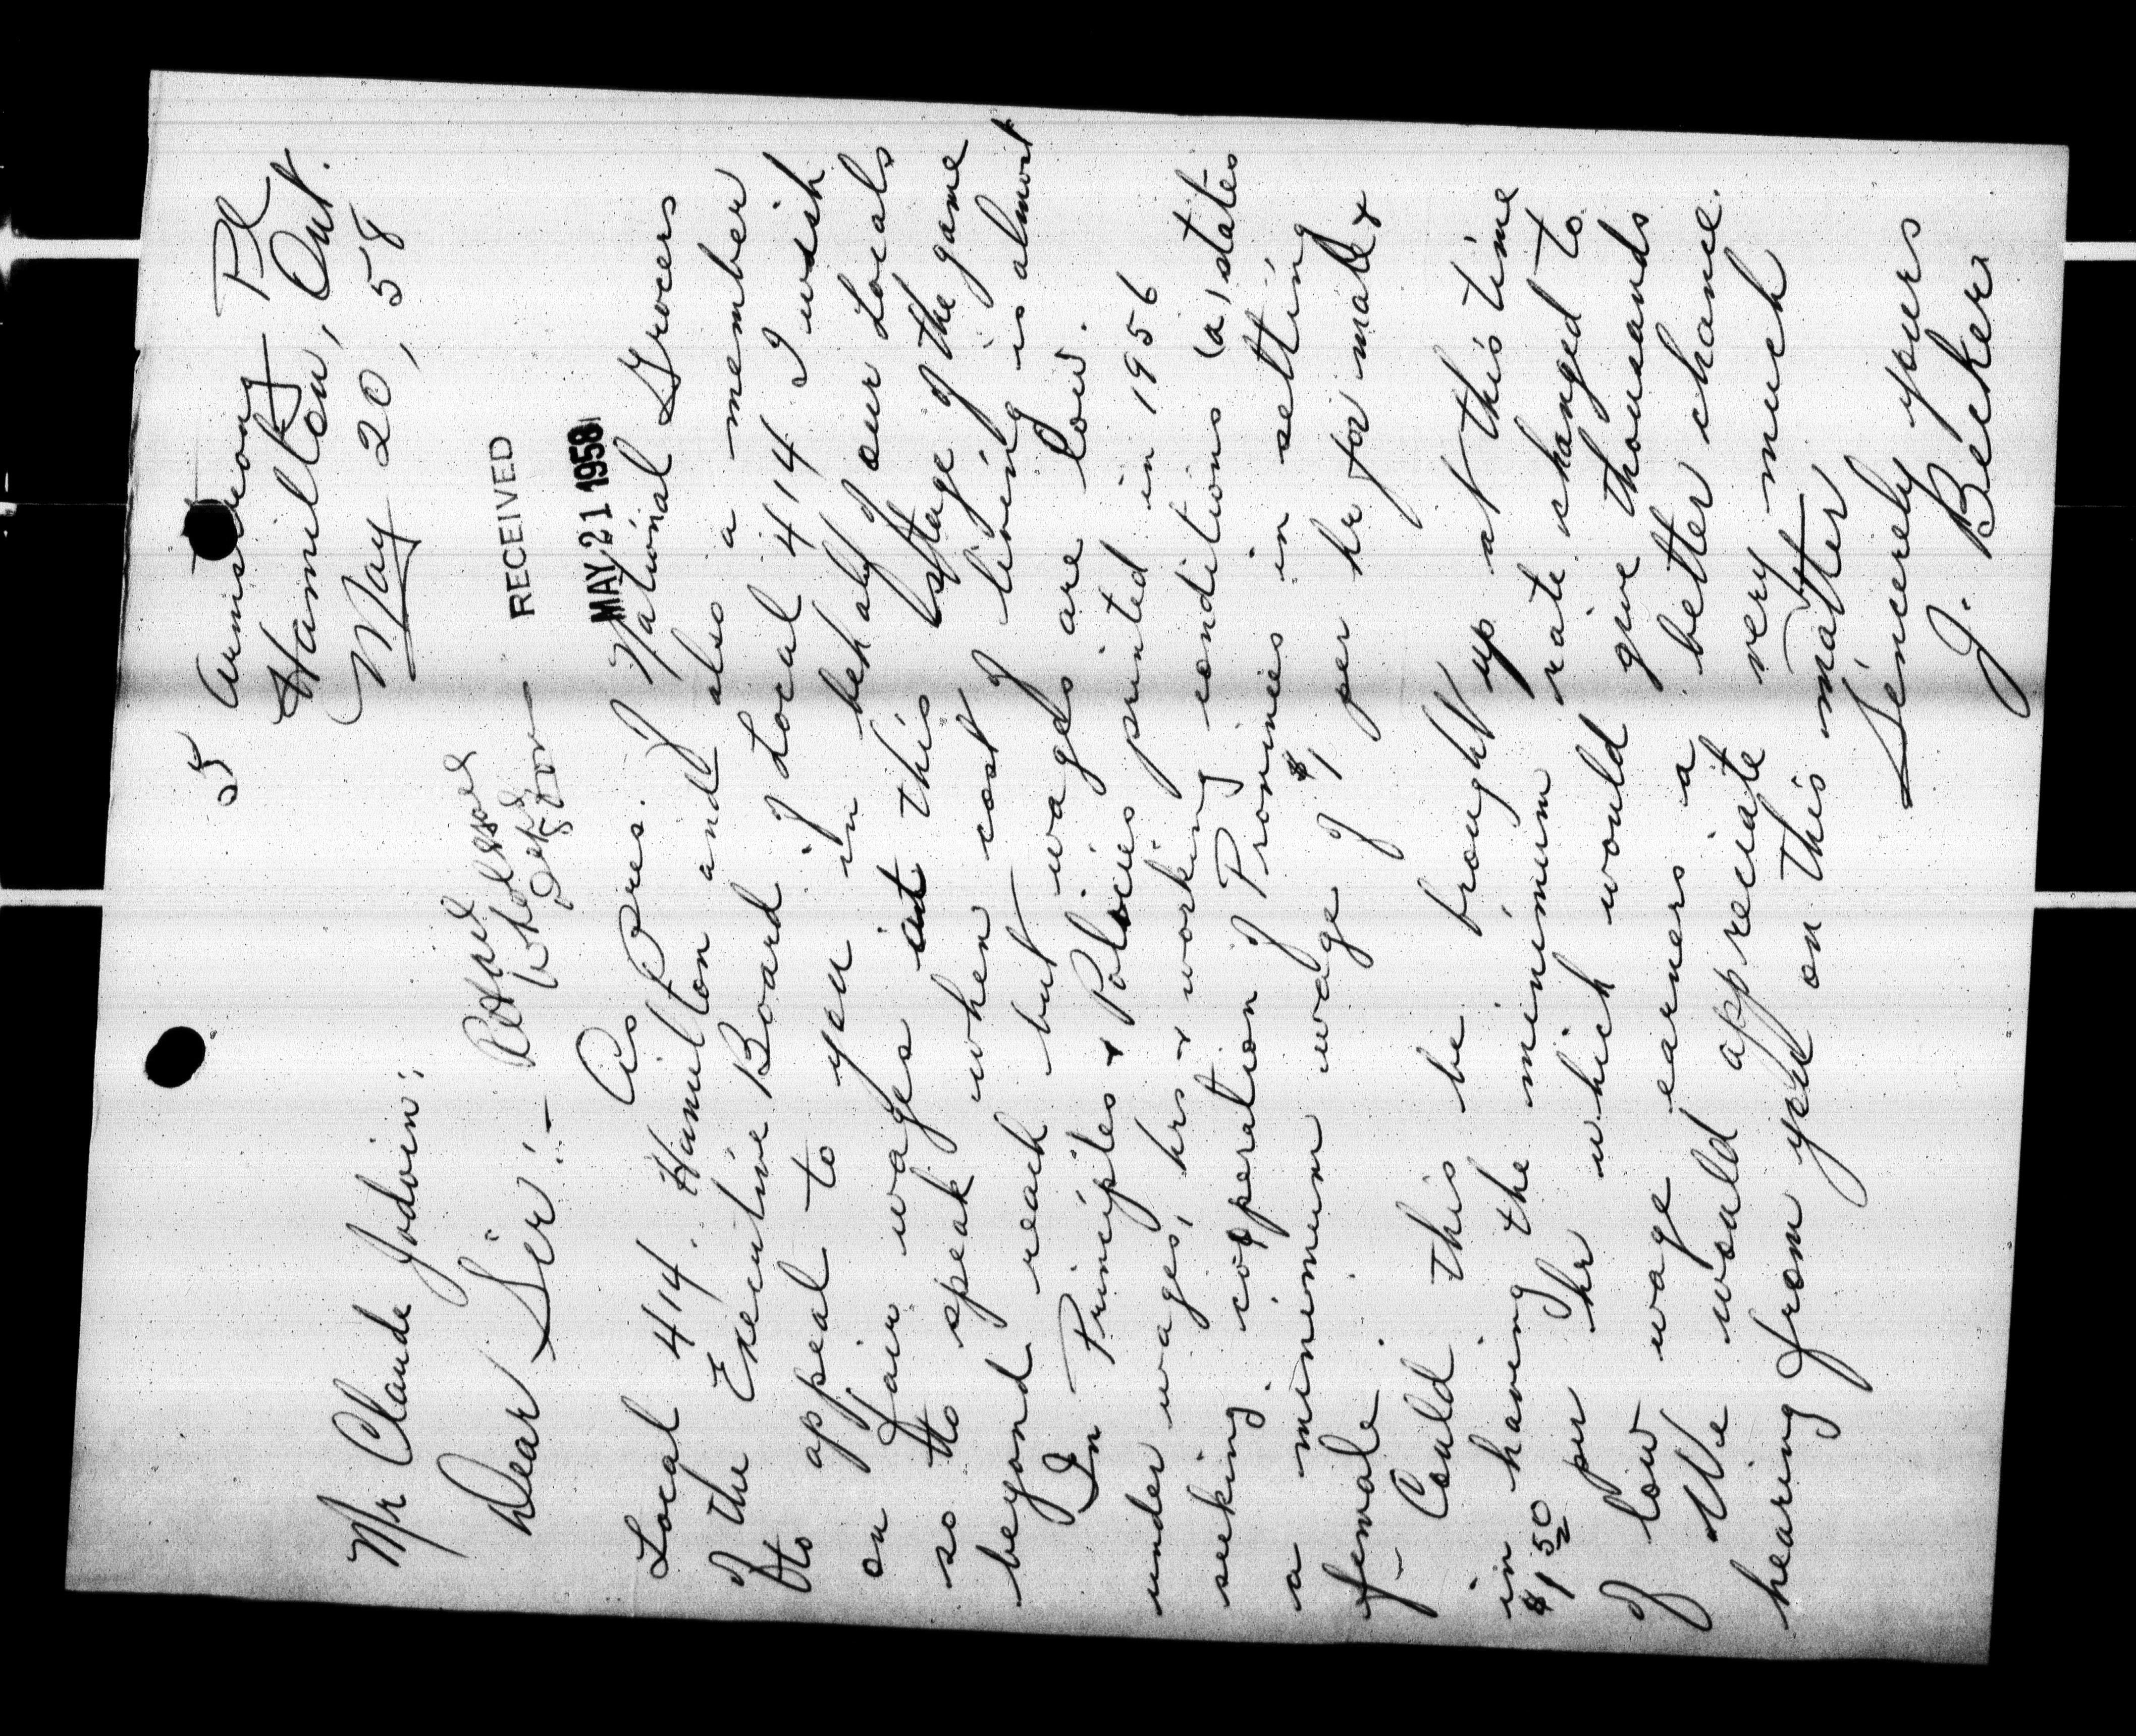 5 Pl
Hamilton, Ont.
May 20, 58
Mr Claude Jodoin;
RECEIVED
MAY 21 1958
Dear Sir:-
As Pres. of National Grocers
Local 414. Hamilton and also a member
of the Executive Board of Local 414 I wish
to appeal to you in behalf of our Locals
on fair wages at this stage of the game
so to speak when cost of living is almost
beyond reach but wages are low.
In Principles & Policies printed in 1956
under wages, hrs & working conditions (a) states
seeking cooperation of Provinces in setting
a minimum wage of $1 per hr for male &
female.
Could this be brought up at this time
in having the minimum rate changed to
$1.50 per hr which would give thousands
of low wage earners a better chance.
We would appreciate very much
hearing from you on this matter
Sincerely yours
J. Becker